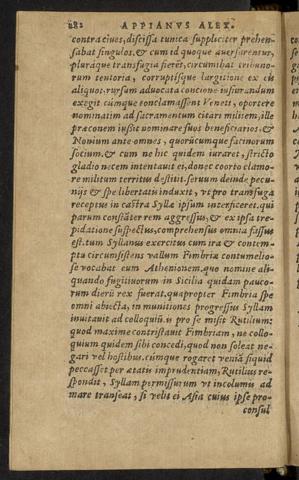 282 APPIANVS ALEX.
contra ciues, discissa tunica suppliciter prehen-
sabat singulos. & cum id quoque auersarentur,
pluráque transfugia fierēt, circumibat tribuno-
rum tentoria, corruptisque largitione ex eis
aliquot, rursum aduocata concione iusiurandum
exegit cúmque conclamassent Veneti, oportere
nominatim ad sacramentum citari milites, ille
præconem iussit nominare suos beneficiarios. &
Nomium ante omnes, quorúcumque facinorum
socium. & cum ne hic quidem iuraret, stricto
gladio necem intentauit ei, donec coorto clamo-
re militum territus destitit. seruum deinde pecu-
nijs & spe libertatis induxit, vt pro transfuga
receptus in castra Syllæ ipsum interficeret. qui
parum constāter rem aggressus, & ex ipsa tre-
pidatione suspectus, comprehensus omnia fassus
est. tum Syllanus exercitus cum ira & contem-
ptu circumsistens vallum Fimbriæ contumelio-
se vocabat eum Athenionem. quo nomine ali-
quando fugitiuorum in Sicilia quidam pauco-
rum dierū rex fuerat. quapropter Fimbria spe
omni abiecta, in munitiones progressus Syllam
inuitauit ad colloquiū. is pro se misit Rutilium:
quod maxime contristauit Fimbriam, ne collo-
quium quidem sibi concedi, quod non soleat ne-
gari vel hostibus. cúmque rogaret veniā siquid
peccasset per ætatis imprudentiam, Rutilius re-
spondit, Syllam permissurum vt incolumis ad
mare transeat, si velit ei Asia cuius ipse pro-
consul